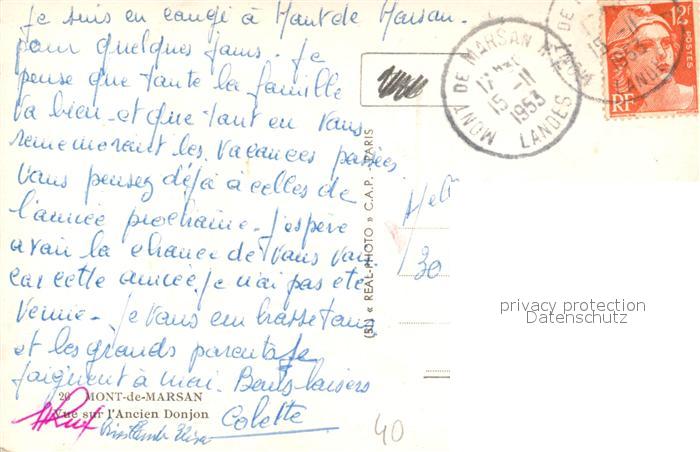 Je suis en congé à Mont de Marsan.
pour quelques jours. Je
pense que toute la famille
va bien et que tout en vous
remémorant les vacances passées
vous pensez déjà a celles de
l'année prochaine. J'espère
avoir la chance de vous voir
car cette année je n'ai pas été
venue. Je vous embrasse tous
et les grands parents se
joignent à moi. Bons baisers
Colette
20 MONT-de-MARSAN
Vue sur l'Ancien Donjon
40
(SI) « REAL-PHOTO » C.A.P. - PARIS
30
MONT DE MARSAN
15 -11
1953
LANDES
12F
POSTES
RF
privacy protection
Datenschutz